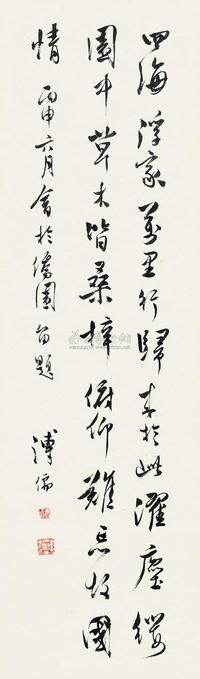 四海浮家万里行歸来於此濯塵纓
園中草木皆桑梓俯仰難忘故國
情 丙申六月會於僑園留題
溥儒